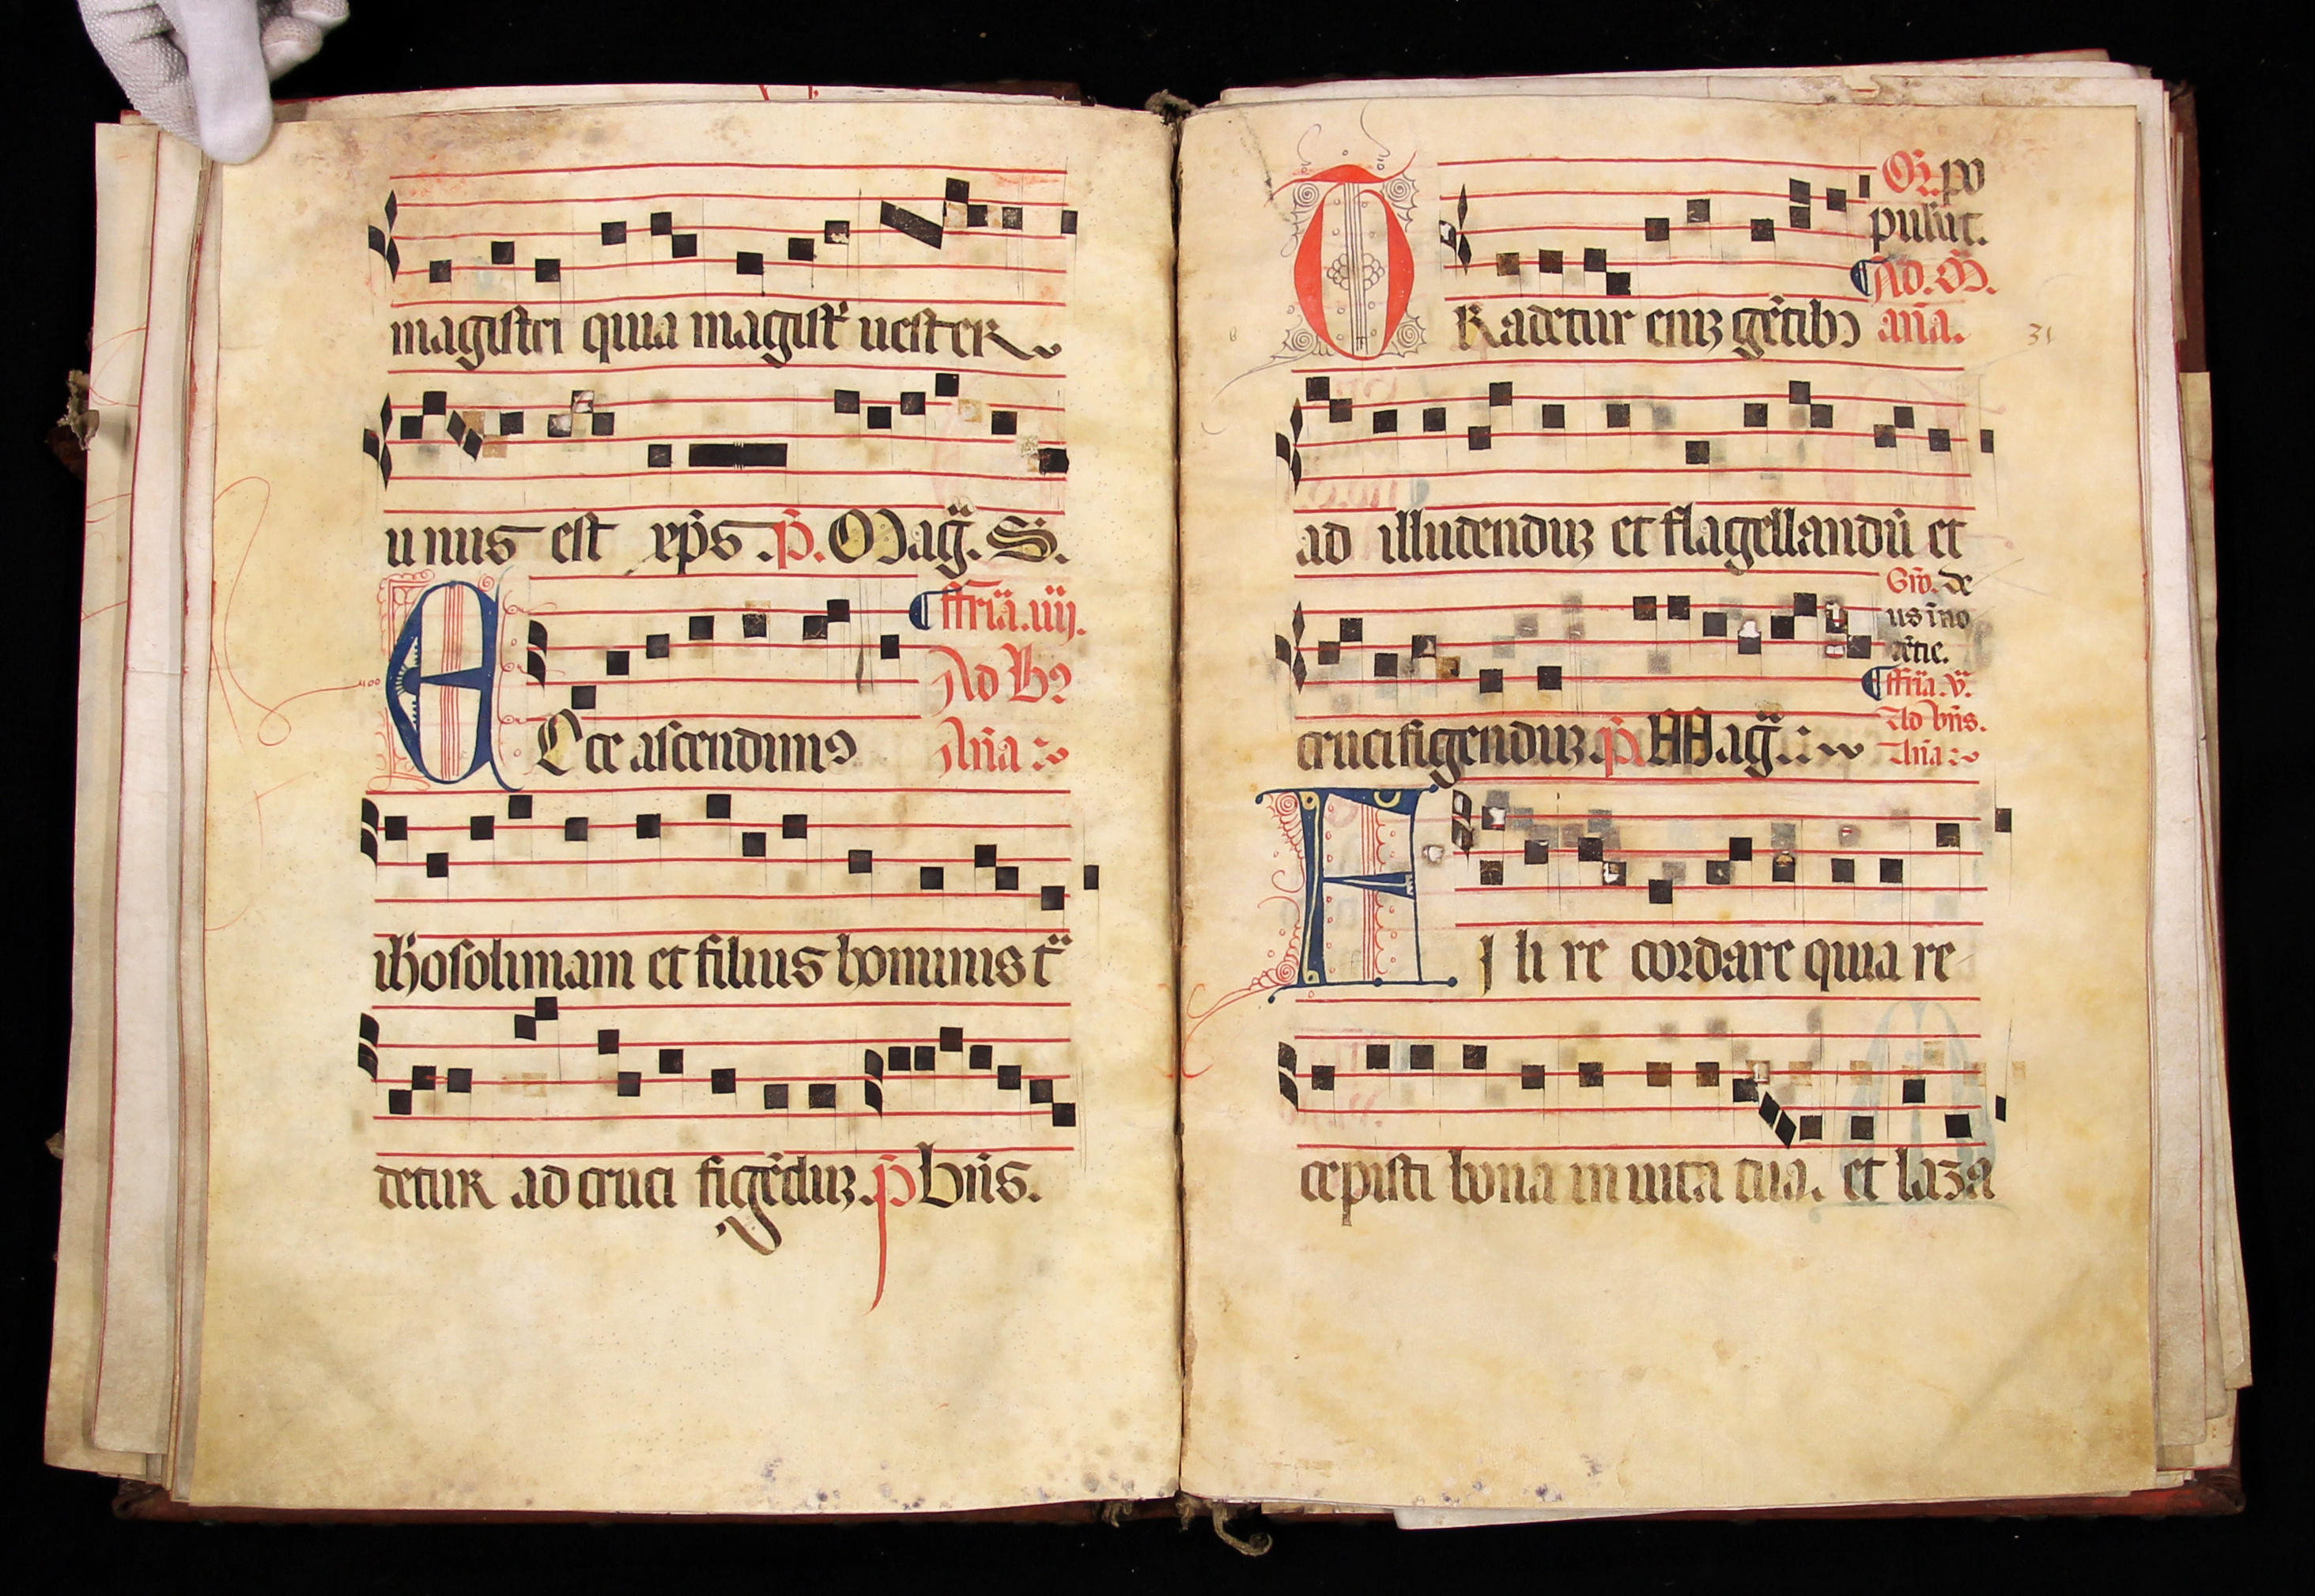 magistri quia magistʳ uester
unus est xp̄s. p̄. Mag̈. S.
¶ ffr̄ia. iiij.
Ad Bn̄
Ecce ascendimꝰ
An̄a
ih̄osolimam et filius hominis t̄
detur ad cruci figēduꝫ. p̄ Bn̄s.
Or̄. po
pulūt.
¶ Ad. M̄.
TRadetur eniꝫ gētibꝫ an̄a.
31
ad illudenduꝫ et flagellandū et
Or̄o. de
us īno
cētie.
¶ ffr̄ia. v̄.
Ad bn̄s.
crucifigenduꝫ. p̄. Mag̈.
An̄a
Fili re cordare quia re
cepisti bona in uita tua. et laza